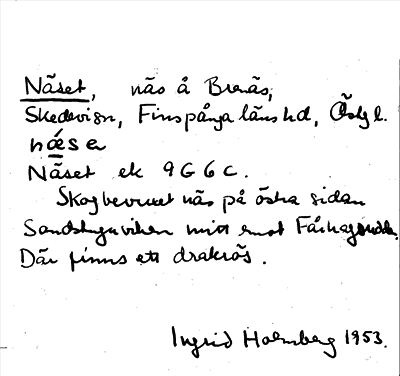 Näset, näs å Brenäs,
Skedevi sn, Finspånga läns hd, Östg l.
næse
Näset ek 9G6c.
Skogbevuxet näs på östra sidan
Sandstuguviken mitt emot Fårhagsudda.
Där finns ett drakrös.
Ingrid Holmberg 1953.